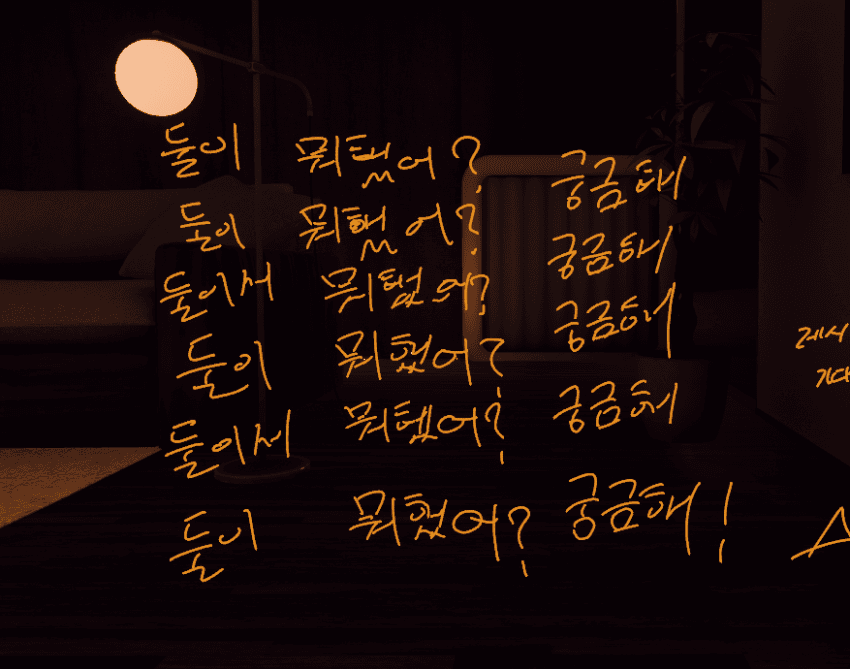 둘이 뭐했어? 궁금해
둘이 뭐했어? 궁금해
둘이서 뭐했어? 궁금해
둘이 뭐했어? 궁금해
둘이서 뭐했어? 궁금해
둘이 뭐했어? 궁금해!